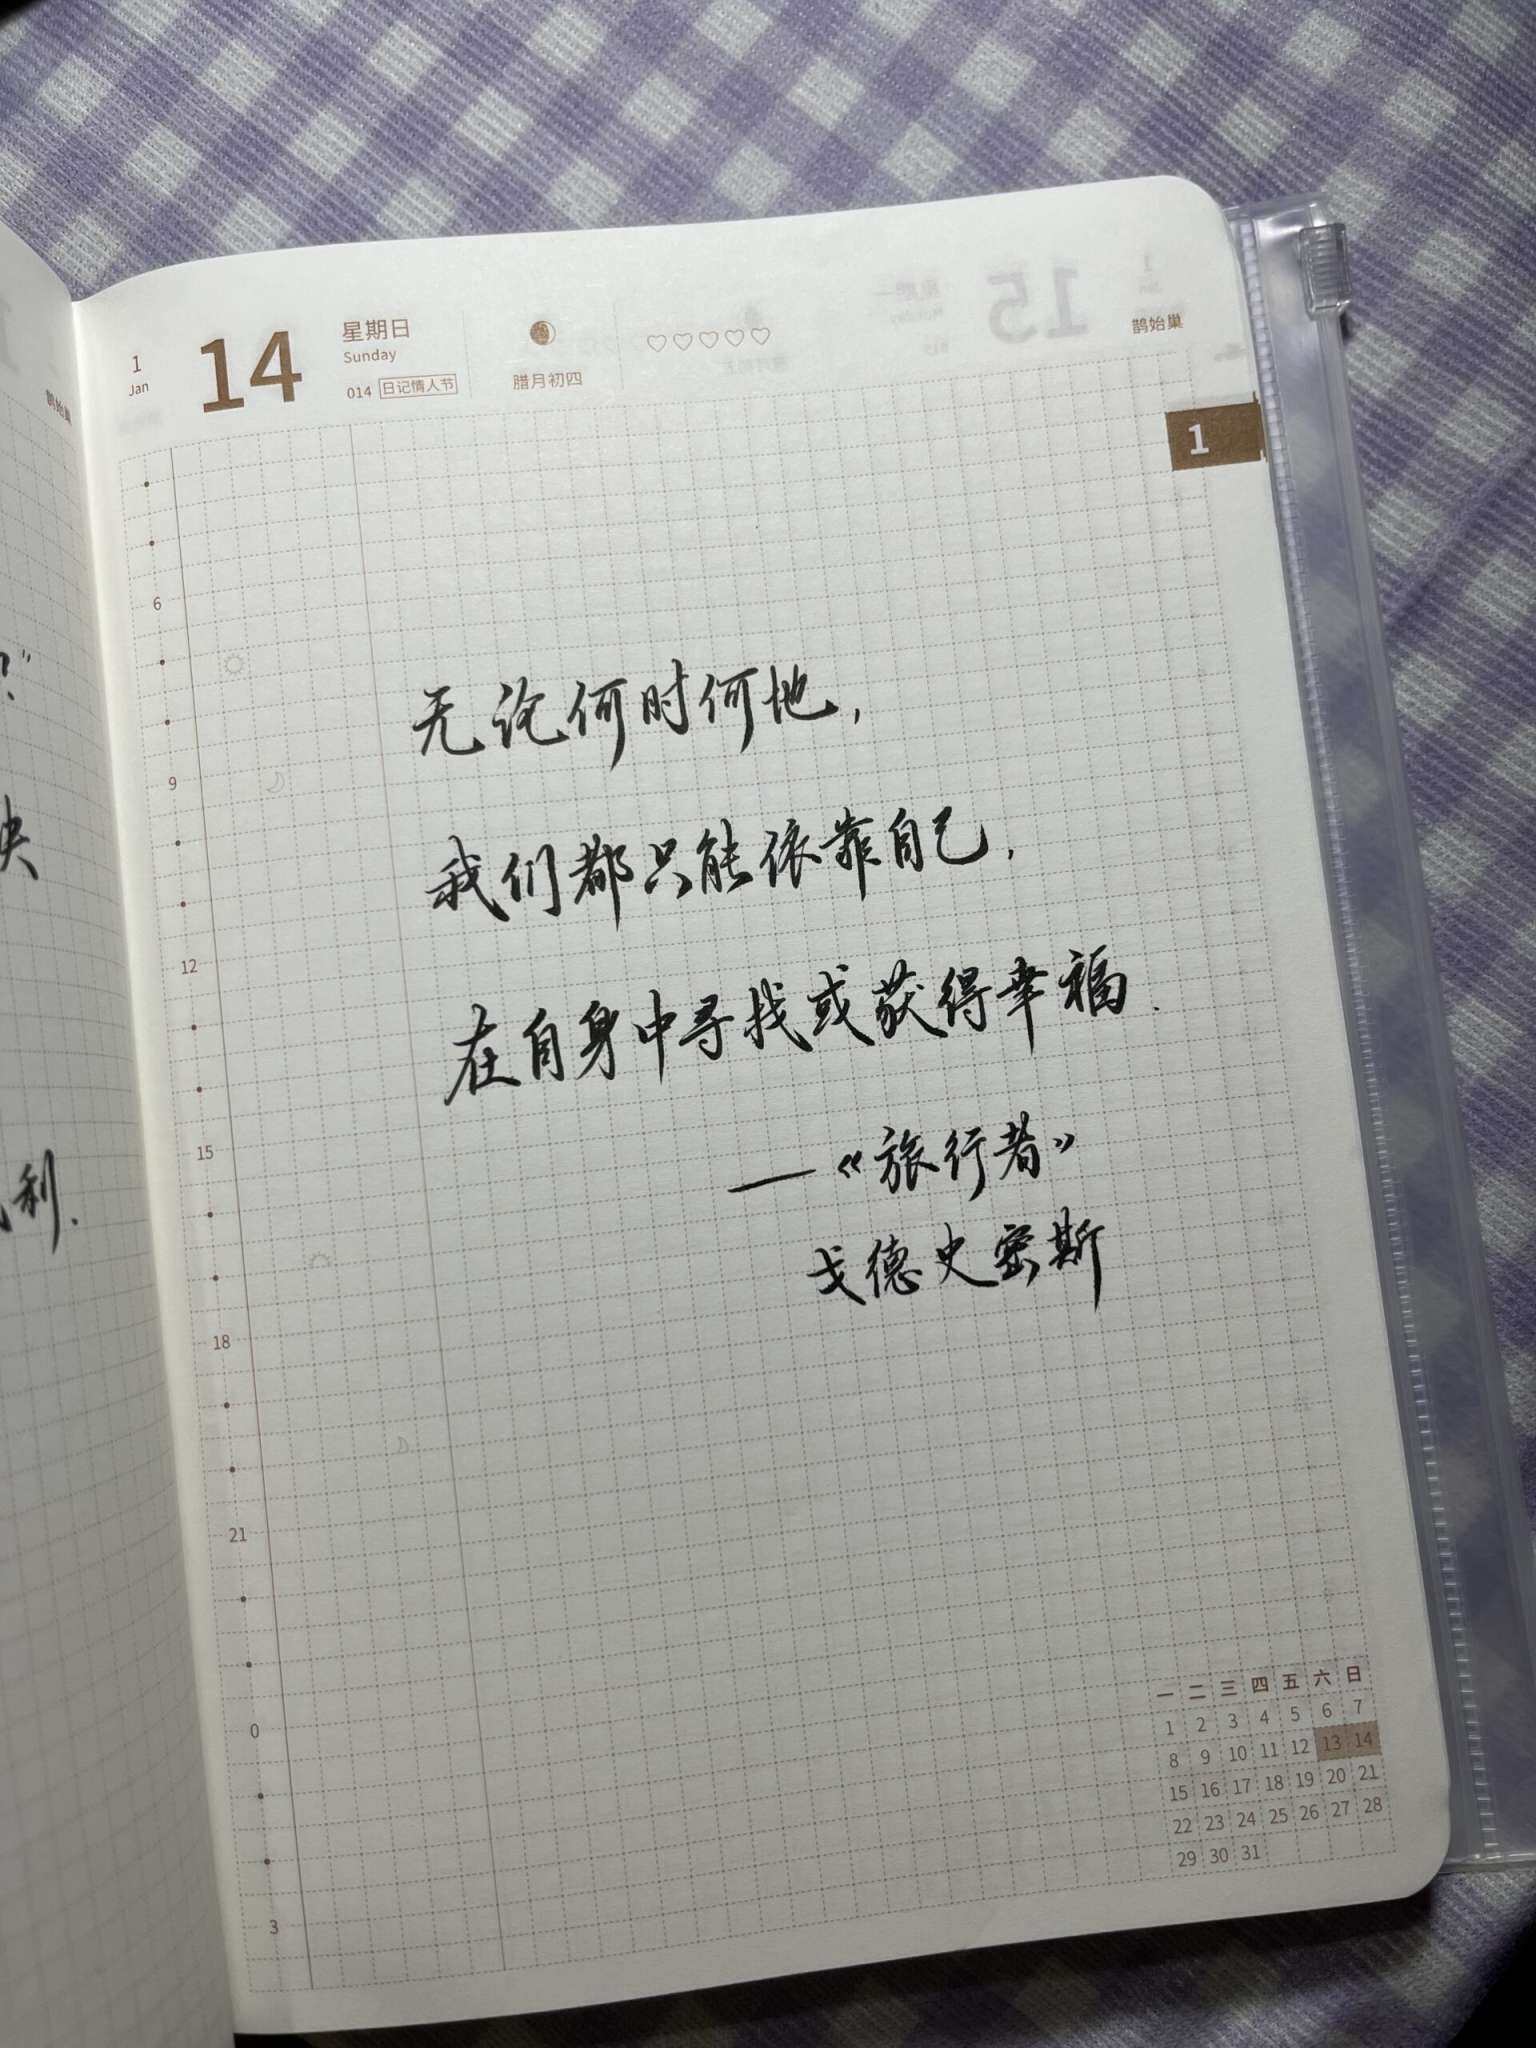 1
Jan
14
星期日
Sunday
014 日记情人节
腊月初四
鹊始巢
1
无论何时何地，
我们都只能依靠自己，
在自身中寻找或获得幸福.
——《旅行者》
戈德史密斯
6
9
12
15
18
21
0
3
一 二 三 四 五 六 日
1 2 3 4 5 6 7
8 9 10 11 12 13 14
15 16 17 18 19 20 21
22 23 24 25 26 27 28
29 30 31
鹊始巢
利.